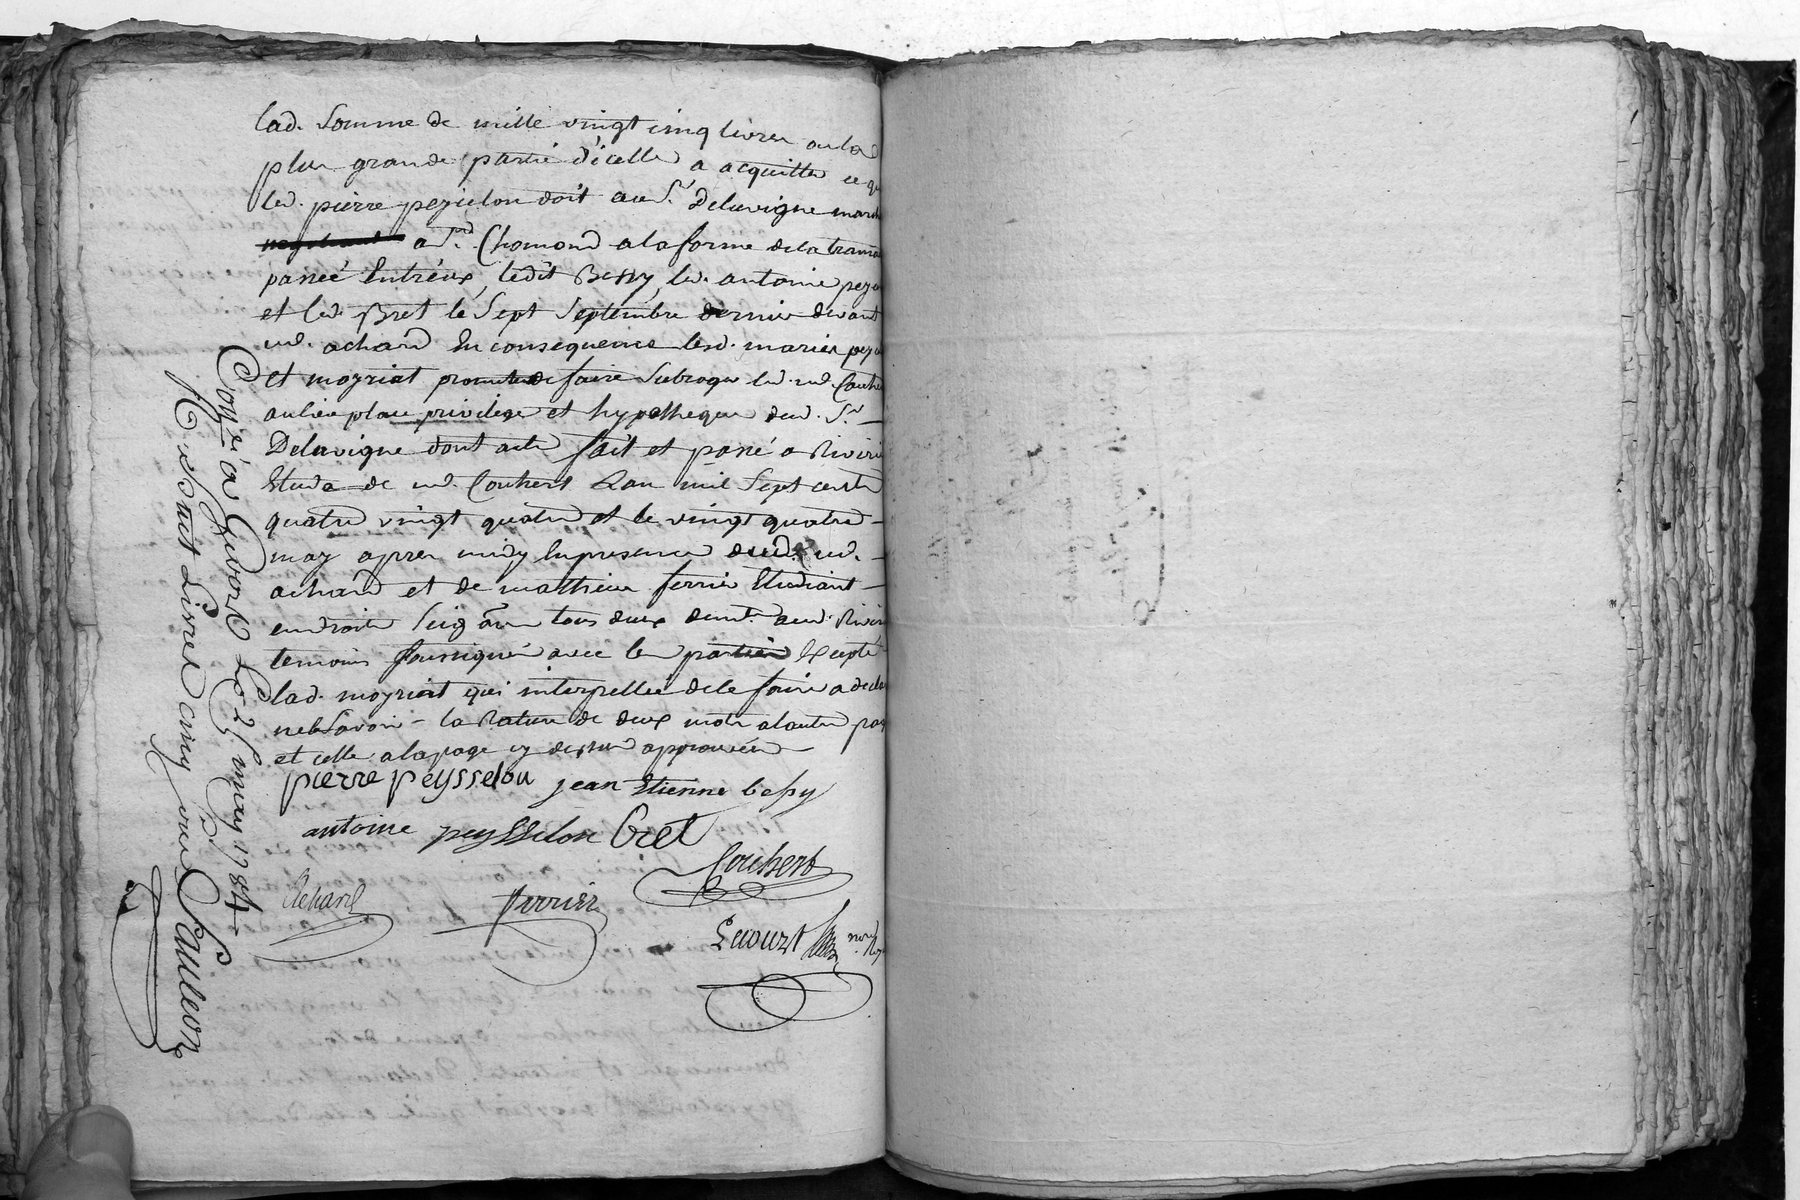 lad. somme de mille vingt cinq livres ou la
plus grande partie d'icelle a acquitter ce q
led. pierre peysselon doit aud. Sr. Delavigne march
a St. Chomond a la forme de la transa
passée Entréux, ledit Bessy, led. antoine peys
et led. Bret le sept septembre dernier devant
me. achard En consequence lesd. mariés peys
et moyriat promettent de faire subroger led. me. Couh
au lieu place privilege et hypotheque dud. Sr.
Delavigne dont acte fait et passé a Riveri
Etude de me. Couhert L'an mil sept cents
quatre vingt quatre et le vingt quatre
may apres midy En presence dud. me.
achard et de mathieu ferrier Etudiant
en droits tous deux demt. aud. Riveri
temoins soussignés avec les parties Excepté
lad. moyriat qui interpellée de le faire a decla
ne le savoir - la Rature de deux mots a l'autre pag
et celle a la page cy dessus approuvées
pierre peysselon jean Etienne bessy
antoine peysselon Bret
Couhert
Achard ferrier
Lecourt
Conlé a Givors Le 25 may 1784
R. huit Livres cinq sous Sauleon